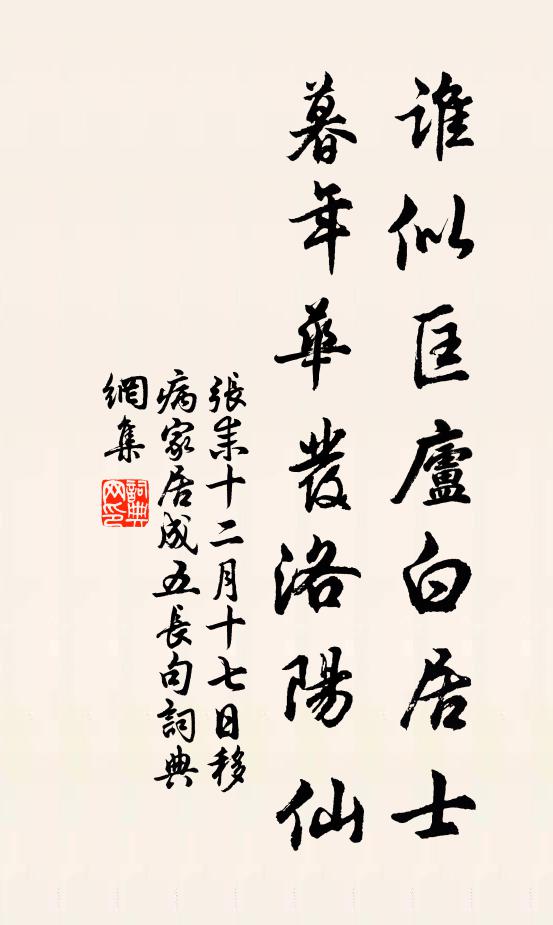 誰似匡廬白居士
暮年華發洛陽仙
張耒十二月十七日移
病家居成五長句詞典
網集
詞典
网印